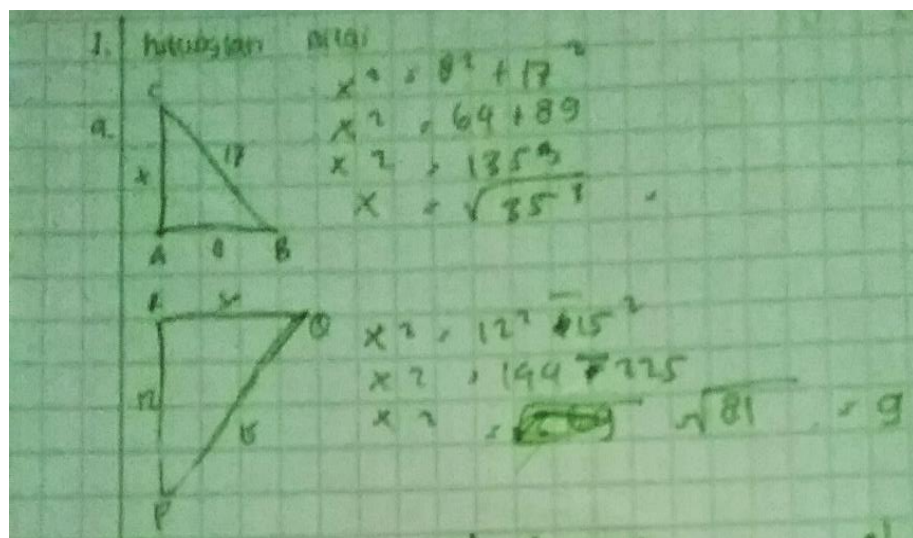 1. hitunglah nilai
a.
C
x
17
A 8 B
x² = 8² + 17²
x² = 64 + 89
x² = 1353
x = √353
x
Q
12
15
P
x² = 12² - 15²
x² = 144 - 225
x² = √81 = 9